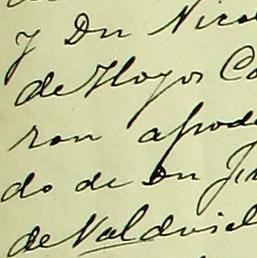 y Dn Nico
de Hoyos Co
ron apode
do de Dn Ji
de Valdviel